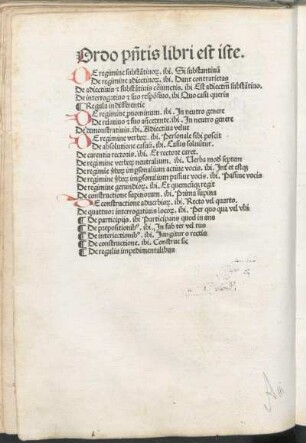 Ordo pñtis libri est iste.
De regimine substãtiuoꝝ. ibi. Si substantiuũ
De regimine adiectiuoꝝ. ibi. Dant contrarietas
De adiectiuo ⁊ substãtiuis cõiunctis. ibi. Est adiectiuũ substãtiuo.
De interrogatiuo ⁊ suo respõsiuo. ibi. Quo casu queris
¶ Regula indifferentie
De regimine pnominum. ibi. In neutro genere
De relatiuo ⁊ suo añcedente. ibi. In neutro genere
De demonstratiuis. ibi. Adiectiua velut
De regimine verboꝝ. ibi. Personale sibi poscit
De absolutione casus. ibi. Casus soluitur.
De carentia rectoris. ibi. Et rectore caret.
De regimine verboꝝ neutralium. ibi. Verba modi septem
De regimine ꝟboꝝ impersonalium actiue vocis. ibi.
De regimine ꝟboꝝ impersonalium passiue vocis. ibi. Passiue vocis
De regimine gerundioꝝ. ibi. Et quemcũqꝫ regit
De constructione supinorum. ibi. Prima supina
De constructione aduerbioꝝ. ibi. Recto vel quarto.
De quattuor interrogatiuis locoꝝ. ibi. Per quo qua vel vbi
¶ De participijs. ibi Participans quod in ans
¶ De prepositionibꝰ. ibi. In sub ter vel
¶ De interiectionibꝰ. ibi. Iungitur o rectis
¶ De constructione. ibi. Construe sic
¶ De regulis impedimentalibus